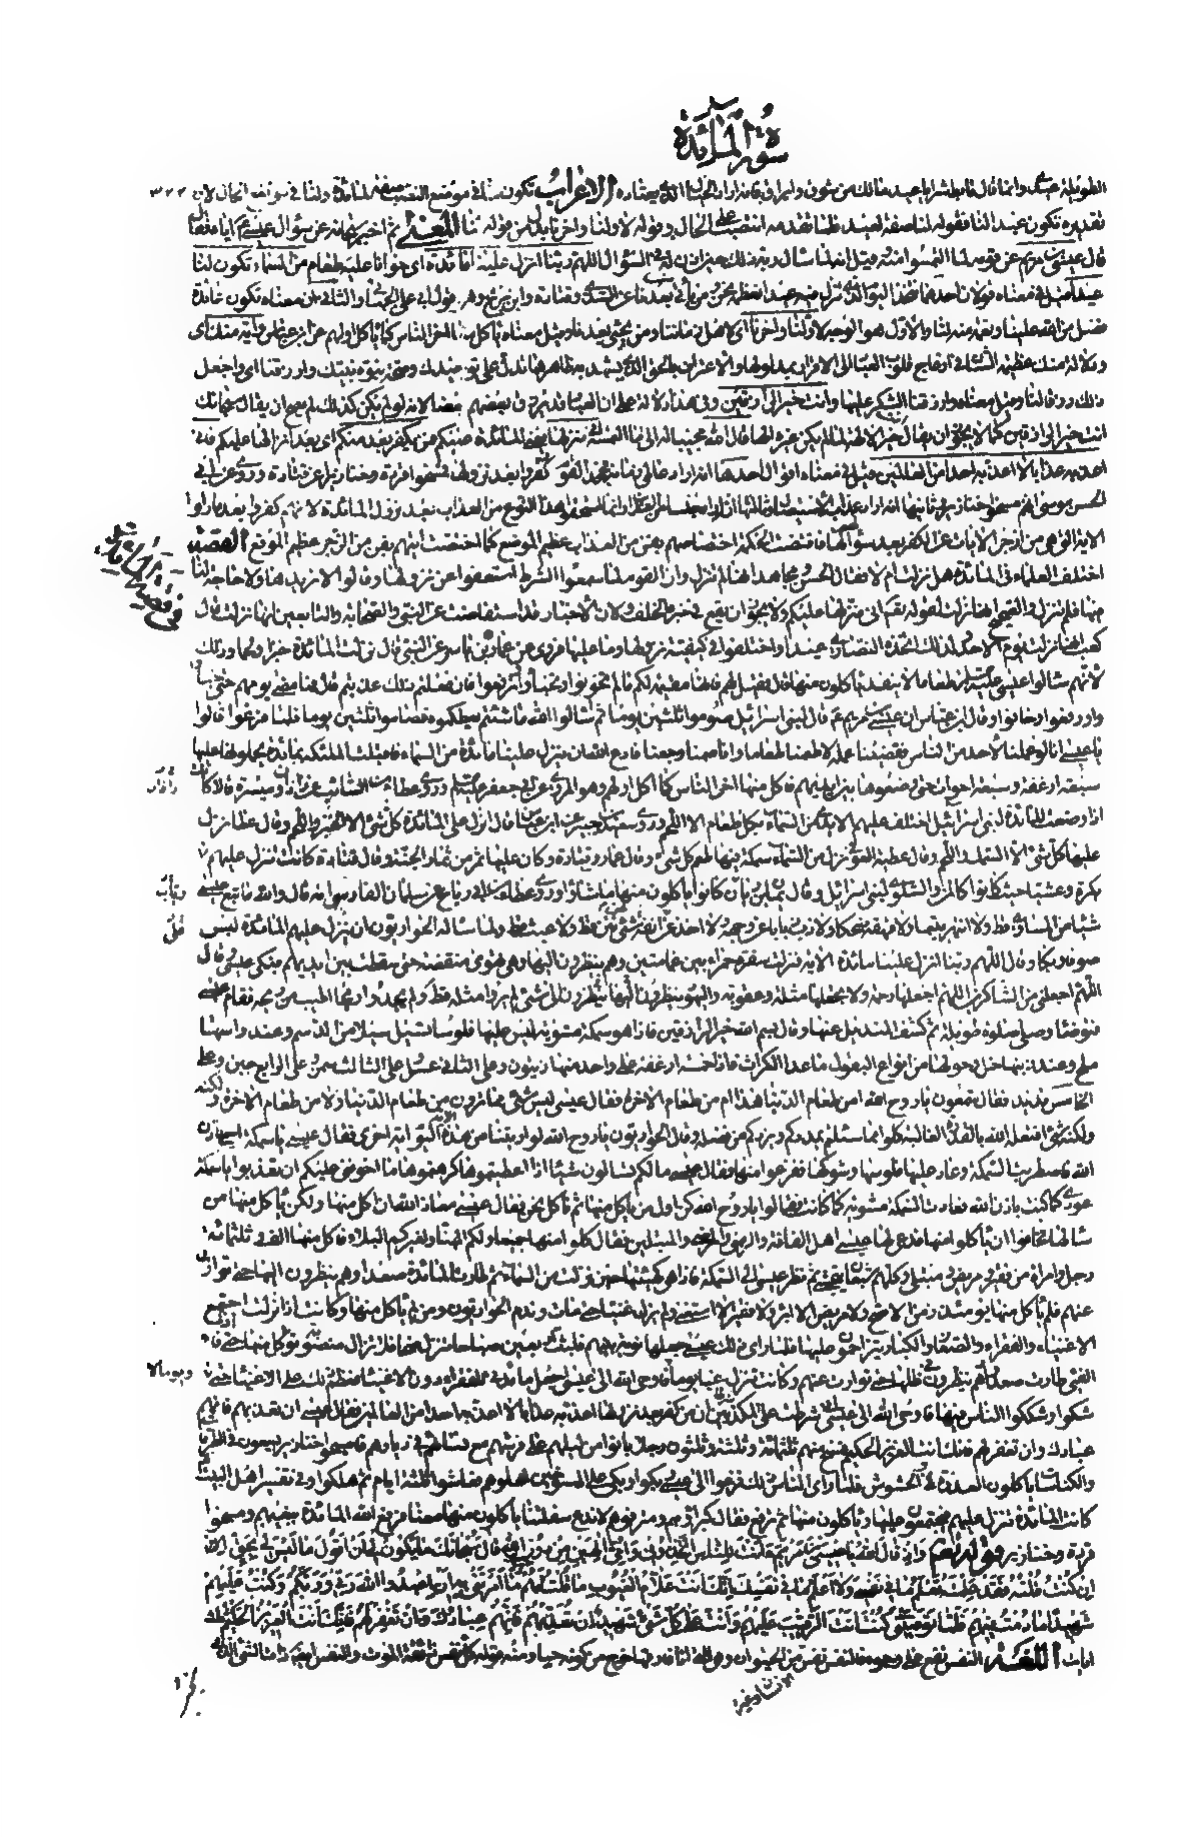 سورة المائدة
٣٢٢
الاعراب تكون لنا في موضع النصب صفة لمائدة ولنا في موضع الحال لان
تقديره تكون عيدا لنا فقوله لنا صفة لعيد فلما تقدمه انتصب على الحال وقوله لاولنا واخرنا بدل من قوله لنا المعنى ثم اخبر سبحانه عن سؤال عيسى
قال عيسى بن مريم عن قومه لما التمسوا منه وقيل انه انما سال ربه ذلك حين اذن له في السؤال اللهم ربنا انزل علينا مائدة اى خوانا عليه طعام من السماء تكون لنا
عيدا قيل في معناه قولان احدهما نتخذ اليوم الذي تنزل فيه عيدا نعظمه نحن ومن يأتي بعدنا عن السدي وقتادة وابن جريج وهو قول ابي علي الجبائي والثاني ان معناه تكون عائدة
فضل من الله علينا ونعمة منه لنا والاول هو الوجه لاولنا واخرنا اى لاهل زماننا ومن يجيء بعدنا وقيل معناه يأكل منها اخر الناس كما يأكل اولهم عن ابن عباس واية منك اى
ودلالة منك عظيمة الشأن في ازعاج قلوب العباد الى الاقرار بمدلولها والاعتراف بالحق الذي يشهد به ظاهرها تدل على توحيدك وصحة نبوة نبيك وارزقنا اى واجعل
ذلك رزقا لنا وقيل معناه وارزقنا الشكر عليها وانت خير الرازقين وفي هذا دلالة على ان العباد يرزق بعضهم بعضا لانه لو لم يكن كذلك لم يصح ان يقال سبحانك
انت خير الرازقين كما لا يجوز ان يقال انت خير الالهة لما لم يكن غيره الها قال الله مجيبا له الى ما التمسه اني منزلها يعني المائدة عليكم فمن يكفر بعد منكم اى بعد انزالها عليكم فاني
اعذبه عذابا لا اعذبه احدا من العالمين قيل في معناه اقوال احدها انه اراد عالمي زمانهم فجحد القوم فكفروا بعد نزولها فمسخوا قردة وخنازير عن قتادة وروى عن ابي
الحسن موسى انهم مسخوا خنازير وثانيها انه اراد عذاب الاستيصال وثالثها انه اراد جنسا من العذاب وانما استحقوا هذا النوع من العذاب بعد نزول المائدة لانهم كفروا بعد ما راوا
الاية التي هي من ازجر الايات عن الكفر بعد سؤالهم لها فاقتضت الحكمة اختصاصهم بفن من العذاب عظيم الموقع كما اختصت ايتهم بفن من الزجر عظيم الموقع القصة
في قصة المائدة
اختلف العلماء في المائدة هل نزلت ام لا فقال الحسن ومجاهد انها لم تنزل وان القوم لما سمعوا الشرط استعفوا عن نزولها وقالوا لا نريدها ولا حاجة لنا
فيها فلم تنزل والصحيح انها نزلت لقوله تعالى اني منزلها عليكم ولا يجوز ان يقع في خبره الخلف ولان الاخبار قد استفاضت عن النبي والصحابة والتابعين انها نزلت قال
كعب انها نزلت يوم الاحد ولذلك اتخذه النصارى عيدا واختلفوا في كيفية نزولها وما عليها فروى عن عمار بن ياسر عن النبي قال نزلت المائدة خبزا ولحما وذلك
لانهم سألوا عيسى طعاما لا ينفد يأكلون منها قال فقيل لهم فانها مقيمة لكم ما لم تخونوا وتخبأوا وترفعوا فان فعلتم ذلك عذبتم قال فما مضى يومهم حتى خبأوا
ورفعوا وخانوا وقال ابن عباس ان عيسى بن مريم قال لبني اسرائيل صوموا ثلثين يوما ثم سألوا الله ما شئتم يعطيكموه فصاموا ثلثين يوما فلما فرغوا قالوا
يا عيسى انا لو عملنا لاحد من الناس فقضينا عمله لاطعمنا طعاما وانا صمنا وجعنا فادع الله ان ينزل علينا مائدة من السماء فاقبلت الملئكة بمائدة يحملونها عليها
سبعة ارغفة وسبعة احوات حتى وضعوها بين ايديهم فاكل منها اخر الناس كما اكل اولهم وهو المروى عن ابي جعفر وروى عطاء بن السائب عن زاذان وميسرة قالا كانت
اذا وضعت المائدة لبني اسرائيل اختلفت عليهم الايدي من السماء بكل طعام الا اللحم وروى سعيد بن جبير عن ابن عباس قال انزل على المائدة كل شيء الا الخبز واللحم وقال عطا نزل
عليها كل شيء الا السمك واللحم وقال عطية العوفي نزل من السماء سمكة فيها طعم كل شيء وقال عمار وقتادة وكان عليها ثمر من ثمار الجنة وقال قتادة كانت تنزل عليهم
بكرة وعشيا حيث كانوا كالمن والسلوى لبني اسرائيل وقال يمان بن رئاب كانوا يأكلون منها ما شاؤا وروى عطاء بن ابي رباح عن سلمان الفارسي انه قال والله ما تبع عيسى
شيئا من المساوى قط ولا انتهر يتيما ولا قهقه ضحكا ولا ذب ذبابا عن وجهه ولا اخذ على انفه من شيء نتن قط ولا عبث قط ولما سأله الحواريون ان ينزل عليهم المائدة لبس
صوفا وبكا وقال اللهم ربنا انزل علينا مائدة الاية فنزلت سفرة حمراء بين غمامتين وهم ينظرون اليها وهي تهوى منقضة حتى سقطت بين ايديهم فبكى عيسى وقال
اللهم اجعلني من الشاكرين اللهم اجعلها رحمة ولا تجعلها مثلة وعقوبة واليهود ينظرون اليها ينظرون الى شيء لم يروا مثله قط ولم يجدوا ريحا اطيب من ريحه فقام عيسى
فتوضأ وصلى صلوة طويلة ثم كشف المنديل عنها وقال بسم الله خير الرازقين فاذا هو سمكة مشوية ليس عليها فلوسا تسيل سيلا من الدسم وعند راسها
ملح وعند ذنبها خل وحولها من انواع البقول ما عدا الكراث فاذا خمسة ارغفة على واحد منها زيتون وعلى الثاني عسل وعلى الثالث سمن وعلى الرابع جبن وعلى
الخامس قديد فقال شمعون يا روح الله امن طعام الدنيا هذا ام من طعام الاخرة فقال عيسى ليس شيء مما ترون من طعام الدنيا ولا من طعام الاخرة
ولكنه شيء افتعله الله بالقدرة الغالبة كلوا مما سئلتم يمددكم ويزدكم من فضله وقال الحواريون يا روح الله لو اريتنا من هذه الاية اليوم اية اخرى فقال عيسى يا سمكة احيي باذن
الله فاضطربت السمكة وعاد عليها فلوسها وشوكها ففزعوا منها فقال عيسى ما لكم تسألون شيئا اذا اعطيتموها كرهتموها ما اخوفني عليكم ان تعذبوا يا سمكة
عودي كما كنت باذن الله فعادت السمكة مشوية كما كانت فقالوا يا روح الله كن اول من يأكل منها ثم نأكل نحن فقال عيسى معاذ الله ان اكل منها ولكن يأكل منها من
سألها فخافوا ان يأكلوا منها فدعا لها عيسى اهل الفاقة والزمني والمرضى والمبتلين فقال كلوا منها جميعا ولكم المهنأ ولغيركم البلاء فاكل منها الف وثلثمائة
رجل وامراة من فقير ومريض ومبتلى وكلهم شبعان يتجشى ثم نظر عيسى الى السمكة فاذا هي كهيئتها حين نزلت من السماء ثم طارت المائدة صعدا وهم ينظرون اليها حتى توارت
عنهم فلم يأكل منها يومئذ زمن الا صح ولا مريض الا ابرئ ولا فقير الا استغنى ولم يزل غنيا حتى مات وندم الحواريون ومن لم يأكل منها وكانت اذا نزلت اجتمع
الاغنياء والفقراء والصغار والكبار يتزاحمون عليها فلما راى ذلك عيسى جعلها نوبة بينهم فلبثت اربعين صباحا تنزل ضحى فلا تزال منصوبة يؤكل منها حتى فاء
الفيء طارت صعدا وهم ينظرون في ظلها حتى توارت عنهم وكانت تنزل غبا يوما ويوما لا فاوحى الله الى عيسى اجعل مائدتي للفقراء دون الاغنياء فعظم ذلك على الاغنياء حتى
شكوا وشككوا الناس فيها فاوحى الله الى عيسى اني شرطت على المكذبين ان من كفر بعد نزولها اعذبه عذابا لا اعذبه احدا من العالمين فقال عيسى ان تعذبهم فانهم
عبادك وان تغفر لهم فانك انت العزيز الحكيم فمسخ منهم ثلثمائة وثلثة وثلثون رجلا باتوا من ليلهم على فرشهم مع نسائهم في ديارهم فاصبحوا خنازير يسعون في الطرقات
والكناسات يأكلون العذرة في الحشوش فلما راى الناس ذلك فزعوا الى عيسى وبكوا وبكى على الممسوخين اهلوهم فعاشوا ثلثة ايام ثم هلكوا وفي تفسير اهل البيت
كانت المائدة تنزل عليهم فيجتمعون عليها ويأكلون منها ثم ترفع فقال كبراؤهم ومترفوهم لا ندع سفلتنا يأكلون منها معنا فرفع الله المائدة ببغيهم ومسخوا
قردة وخنازير قوله تعالى واذ قال الله يا عيسى بن مريم أأنت قلت للناس اتخذوني وامي الهين من دون الله قال سبحانك ما يكون لي ان اقول ما ليس لي بحق
ان كنت قلته فقد علمته تعلم ما في نفسي ولا اعلم ما في نفسك انك انت علام الغيوب ما قلت لهم الا ما امرتني به ان اعبدوا الله ربي وربكم وكنت عليهم
شهيدا ما دمت فيهم فلما توفيتني كنت انت الرقيب عليهم وانت على كل شيء شهيد ان تعذبهم فانهم عبادك وان تغفر لهم فانك انت العزيز الحكيم
ايات اللغة النفس تقع على وجوه فالنفس نفس الحيوان